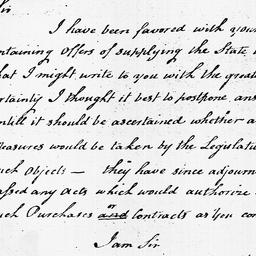 Sir
I have been favored with your
ntaining Offers of supplying the State
hat I might write to you with the great
ertainly I thought it best to postpone ans
untill it should be ascertained whether a
easures would be taken by the Legislat
uch Objects — they have since adjourn
assed any Acts which would authorize
uch Purchases or and Contracts as you con
I am Sir